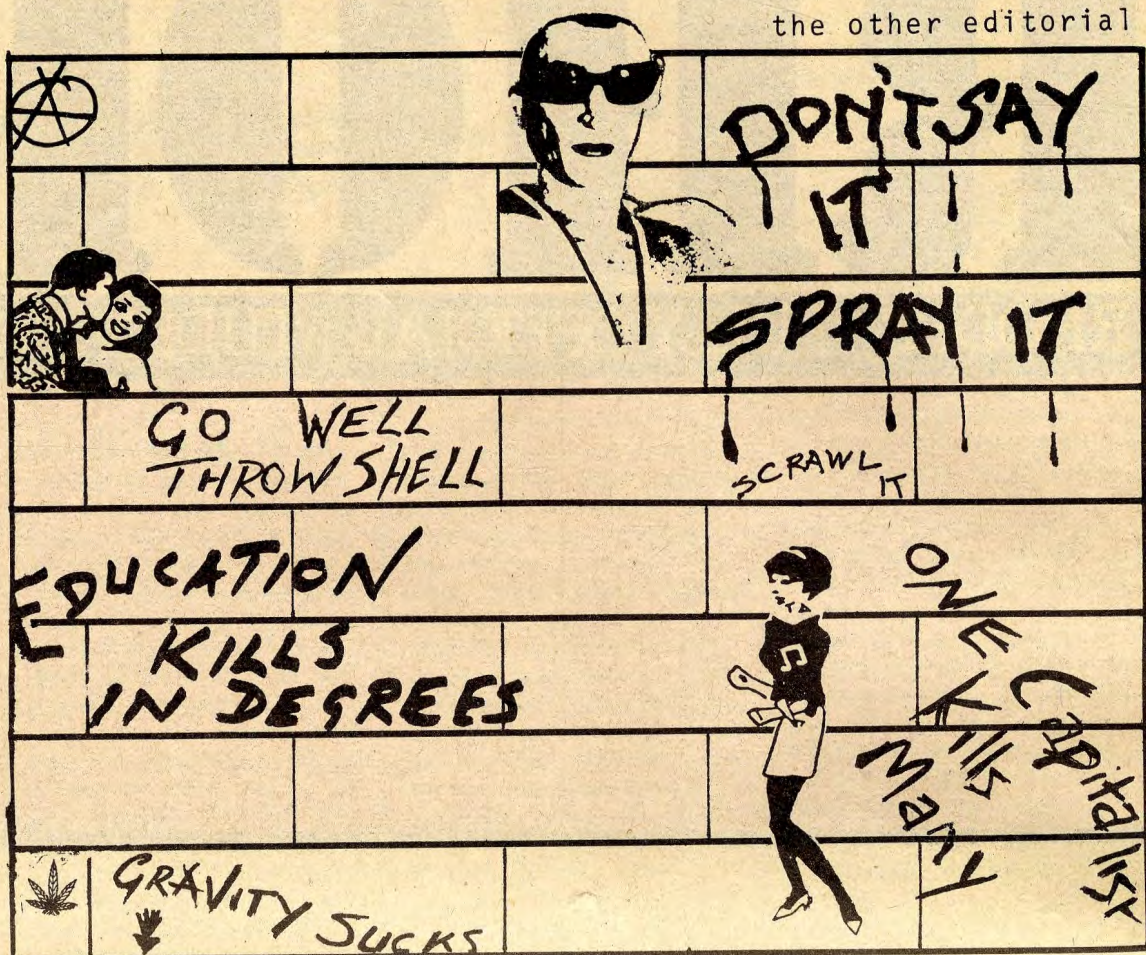 the other editorial
DON'T SAY
IT
SPRAY IT
SCRAWL
IT
GO WELL
THROW SHELL
EDUCATION
KILLS
IN DEGREES
ONE Capitalist
Kills
Many
GRAVITY SUCKS